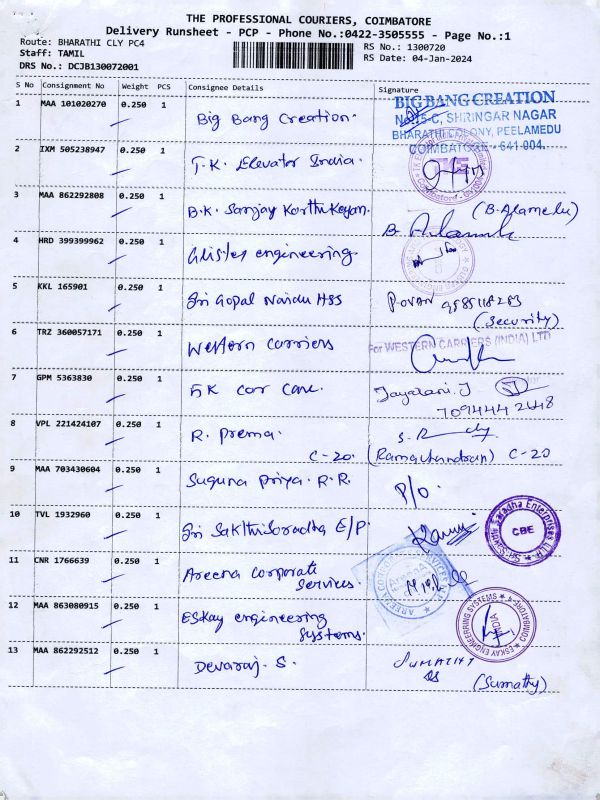 THE PROFESSIONAL COURIERS, COIMBATORE
Delivery Runsheet - PCP - Phone No.:0422-3505555 - Page No.:1
Route: BHARATHI CLY PC4
RS No.: 1300720
Staff: TAMIL
RS Date: 04-Jan-2024
DRS No.: DCJB130072001
S No Consignment No Weight PCS Consignee Details Signature
1 MAA 101020270 0.250 1 Big Bang Creation.
BIG BANG CREATION
No.15-C, SHRINGAR NAGAR
BHARATHI COLONY, PEELAMEDU
COIMBATORE - 641 004.
2 IXM 505238947 0.250 1 T.K. Elevator India.
3 MAA 862292808 0.250 1 B.K. Sanjay Karthikeyan. (B.Alamelu)
B. Alamelu
4 HRD 399399962 0.250 1 Glister engineering
5 KKL 165901 0.250 1 Sri Gopal Naidu HSS
(Security)
6 TRZ 360057171 0.250 1 Western carriers
For WESTERN CARRIERS (INDIA) LTD
7 GPM 5363830 0.250 1 5K car care. Jayarani.J
7094442648
8 VPL 221424107 0.250 1 R. Prema.
C-20. (Ramachandran) C-20
9 MAA 703430604 0.250 1 Suguna Priya. R.R. P/O.
10 TVL 1932960 0.250 1 Sri SakthiSaradha E/P.
Sri Sakthi Saradha Enterprises
CBE
11 CNR 1766639 0.250 1 Areena Corporate
Services.
12 MAA 863080915 0.250 1 ESkay engineering
Systems.
ESKAY ENGINEERING SYSTEMS
COIMBATORE-4
INDIA
13 MAA 862292512 0.250 1 Devaraj. S. SUMATHY
(Sumathy)